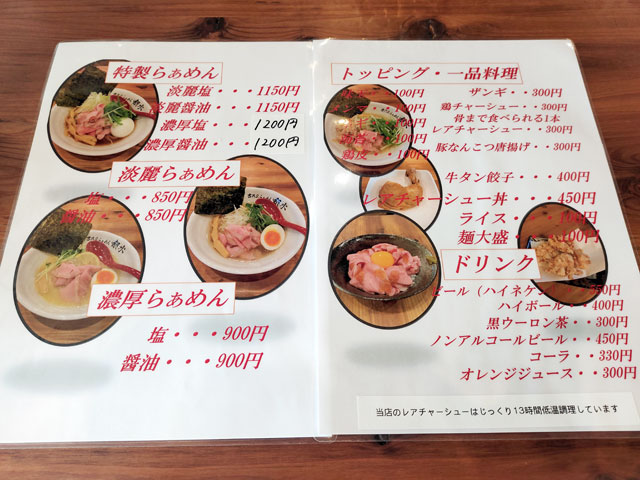 特製らぁめん
淡麗塩・・・1150円
淡麗醤油・・・1150円
濃厚塩・・・1200円
濃厚醤油・・・1200円
淡麗らぁめん
塩・・・850円
醤油・・・850円
濃厚らぁめん
塩・・・900円
醤油・・・900円
トッピング・一品料理
100円
100円
100円
鶏皮・・100円
ザンギ・・300円
鶏チャーシュー・・300円
骨まで食べられる1本
レアチャーシュー・・300円
豚なんこつ唐揚げ・・300円
牛タン餃子・・・400円
レアチャーシュー丼・・・450円
ライス・・・100円
麺大盛・・・100円
ドリンク
ビール（ハイネケン
ハイボール・・400円
黒ウーロン茶・・300円
ノンアルコールビール・・450円
コーラ・・330円
オレンジジュース・・300円
当店のレアチャーシューはじっくり13時間低温調理しています